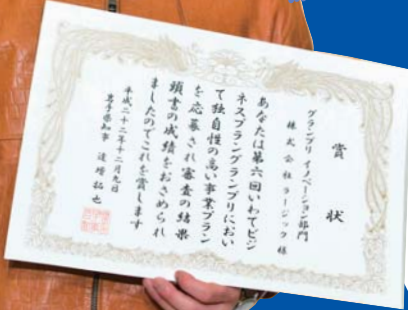 賞状
グランプリ イノベーション部門
株式会社ラージック 様
あなたは第六回いわてビジ
ネスプラングランプリにおい
て独自性の高い事業プラン
を応募され審査の結果
頭書の成績をおさめられ
ましたのでこれを賞します
平成二十二年十二月九日
岩手県知事 達増拓也